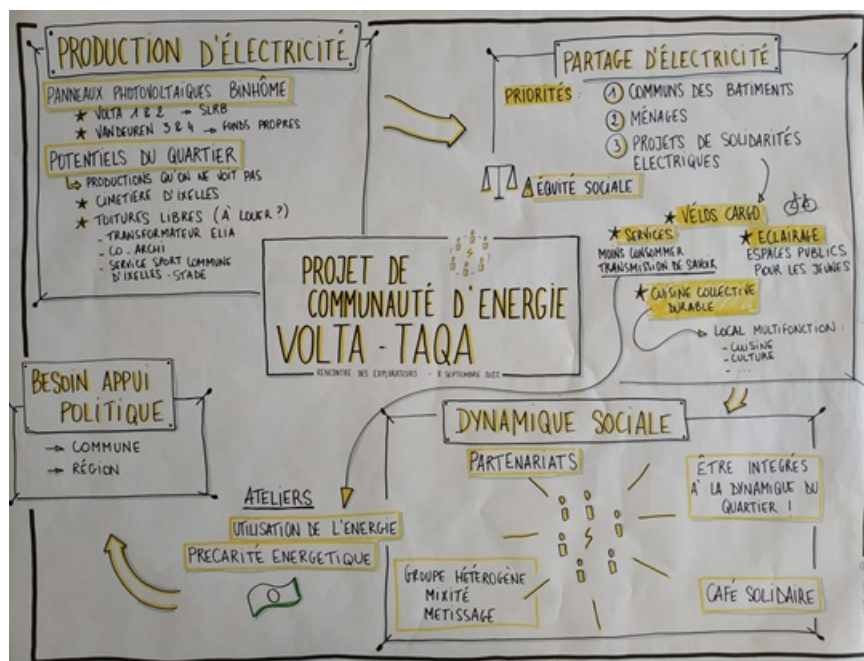 PRODUCTION D'ÉLECTRICITÉ
PANNEAUX PHOTOVOLTAÏQUES BINHÔME
★ VOLTA 1 & 2 → SLRB
★ VANDEUREN 3 & 4 → FONDS PROPRES
POTENTIELS DU QUARTIER
↳ PRODUCTIONS QU'ON NE VOIT PAS
★ CIMETIÈRE D'IXELLES
★ TOITURES LIBRES (À LOUER ?)
- TRANSFORMATEUR ELIA
- CO-ARCHI
- SERVICE SPORT COMMUNE
D'IXELLES-STADE
PARTAGE D'ÉLECTRICITÉ
PRIORITÉS :
① COMMUNS DES BATIMENTS
② MÉNAGES
③ PROJETS DE SOLIDARITÉS
ELECTRIQUES
ÉQUITÉ SOCIALE
★ VÉLOS CARGO
★ SERVICES
MOINS CONSOMMER
TRANSMISSION DE SAVOIR
★ ECLAIRAGE
ESPACES PUBLICS
POUR LES JEUNES
★ CUISINE COLLECTIVE
DURABLE
→ LOCAL MULTIFONCTION :
- CUISINE
- CULTURE
- ...
PROJET DE
COMMUNAUTÉ D'ENERGIE
VOLTA - TAQA
RENCONTRE DES EXPLORATEURS - 8 SEPTEMBRE 2022
BESOIN APPUI
POLITIQUE
→ COMMUNE
→ RÉGION
DYNAMIQUE SOCIALE
PARTENARIATS
ÊTRE INTEGRÉS
À LA DYNAMIQUE DU
QUARTIER !
ATELIERS
UTILISATION DE L'ENERGIE
PRECARITÉ ENERGETIQUE
GROUPE HÉTÉROGÈNE
MIXITÉ
METISSAGE
CAFÉ SOLIDAIRE